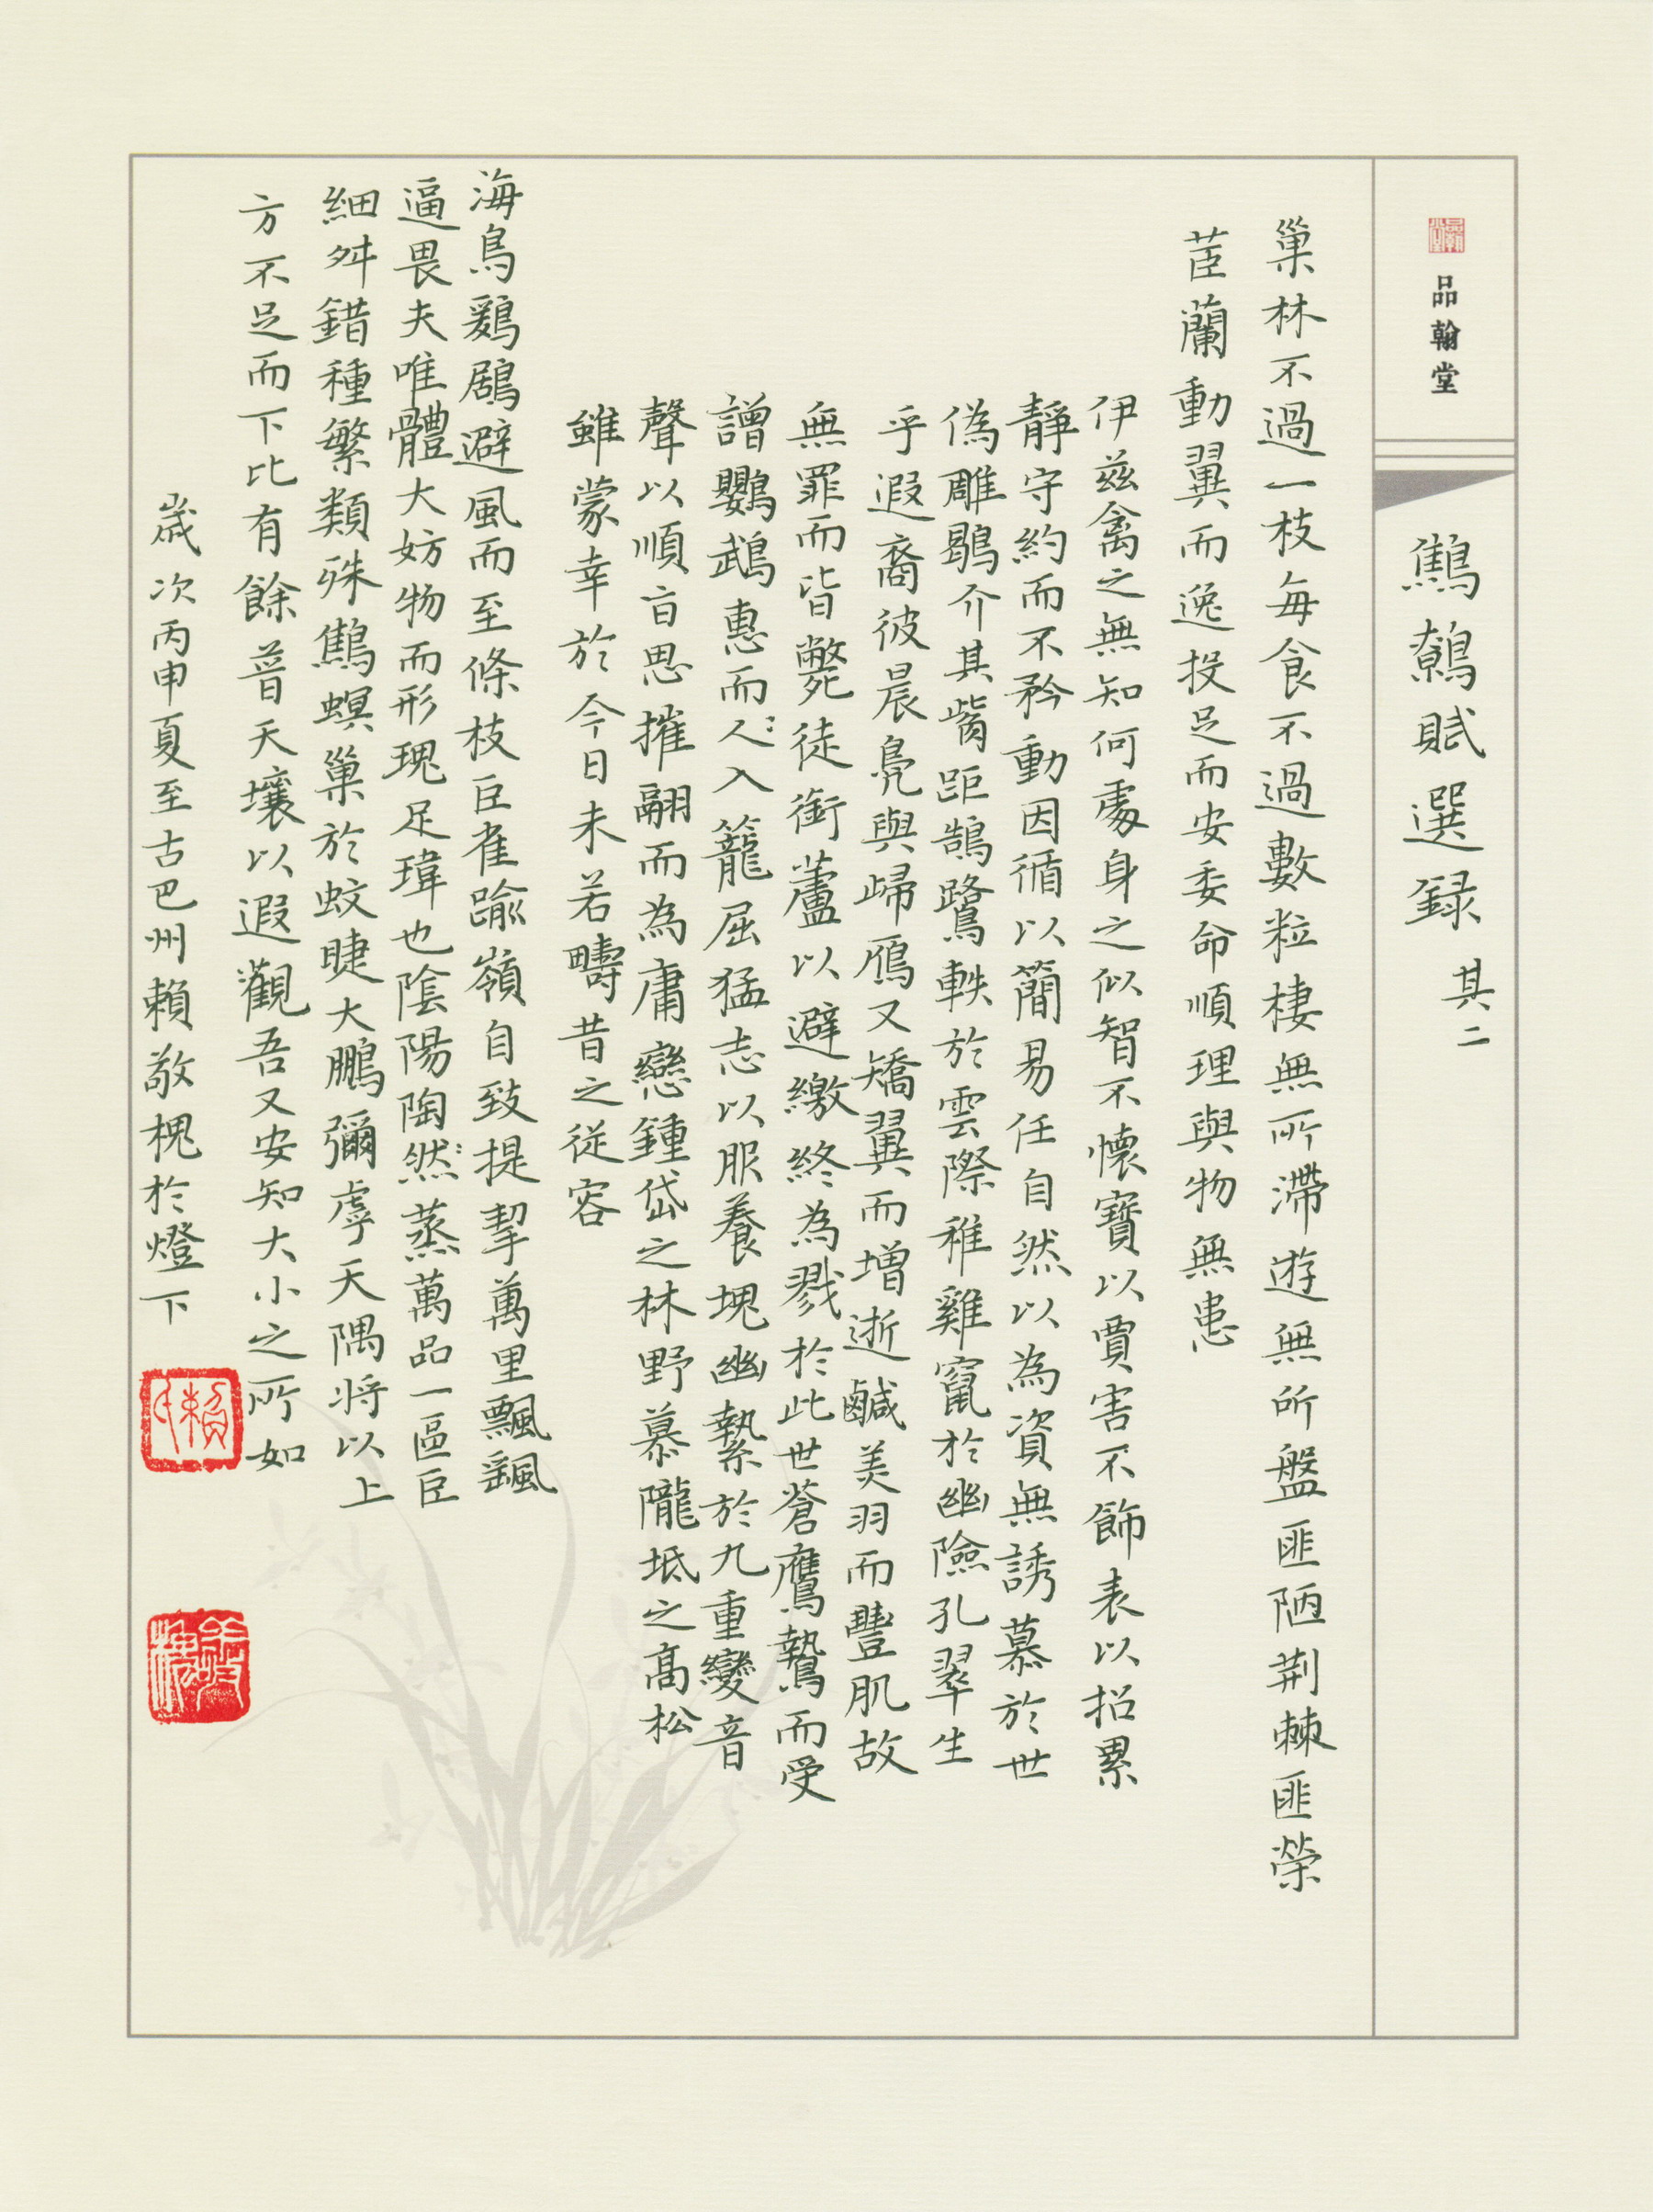 品翰堂
品翰堂
鷦鷯賦選録 其二
巢林不過一枝每食不過數粒棲無所滯遊無所盤匪陋荆棘匪榮
茝蘭動翼而逸投足而安委命順理與物無患
伊茲禽之無知何處身之似智不懷寶以賈害不飾表以招累
靜守約而不矜動因循以簡易任自然以為資無誘慕於世
偽雕鶡介其觜距鵠鷺軼於雲際稚雞竄於幽險孔翠生
乎遐裔彼晨鳧與歸鴈又矯翼而增逝鹹美羽而豐肌故
無罪而皆斃徒銜蘆以避繳終為戮於此世蒼鷹鷙而受
譄鸚鵡惠而人入籠屈猛志以服養塊幽縶於九重變音
聲以順旨思摧翮而為庸戀鍾岱之林野慕隴坻之高松
雖蒙幸於今日未若疇昔之從容
海鳥鶢鶋避風而至條枝巨雀踰嶺自致提挈萬里飄颻
逼畏夫唯體大妨物而形瑰足瑋也陰陽陶然蒸萬品一區巨
細舛錯種繁類殊鷦螟巢於蚊睫大鵬彌乎天隅將以上
方不足而下比有餘普天壤以遐觀吾又安知大小之所如
歲次丙申夏至古巴州賴敬槐於燈下
賴氏
敬槐